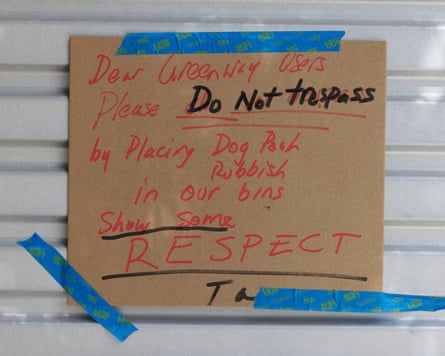 Dear Greenway Users
Please Do Not trespass
by Placing Dog Pooh
Rubbish
in our bins
Show Some
RESPECT
Ta